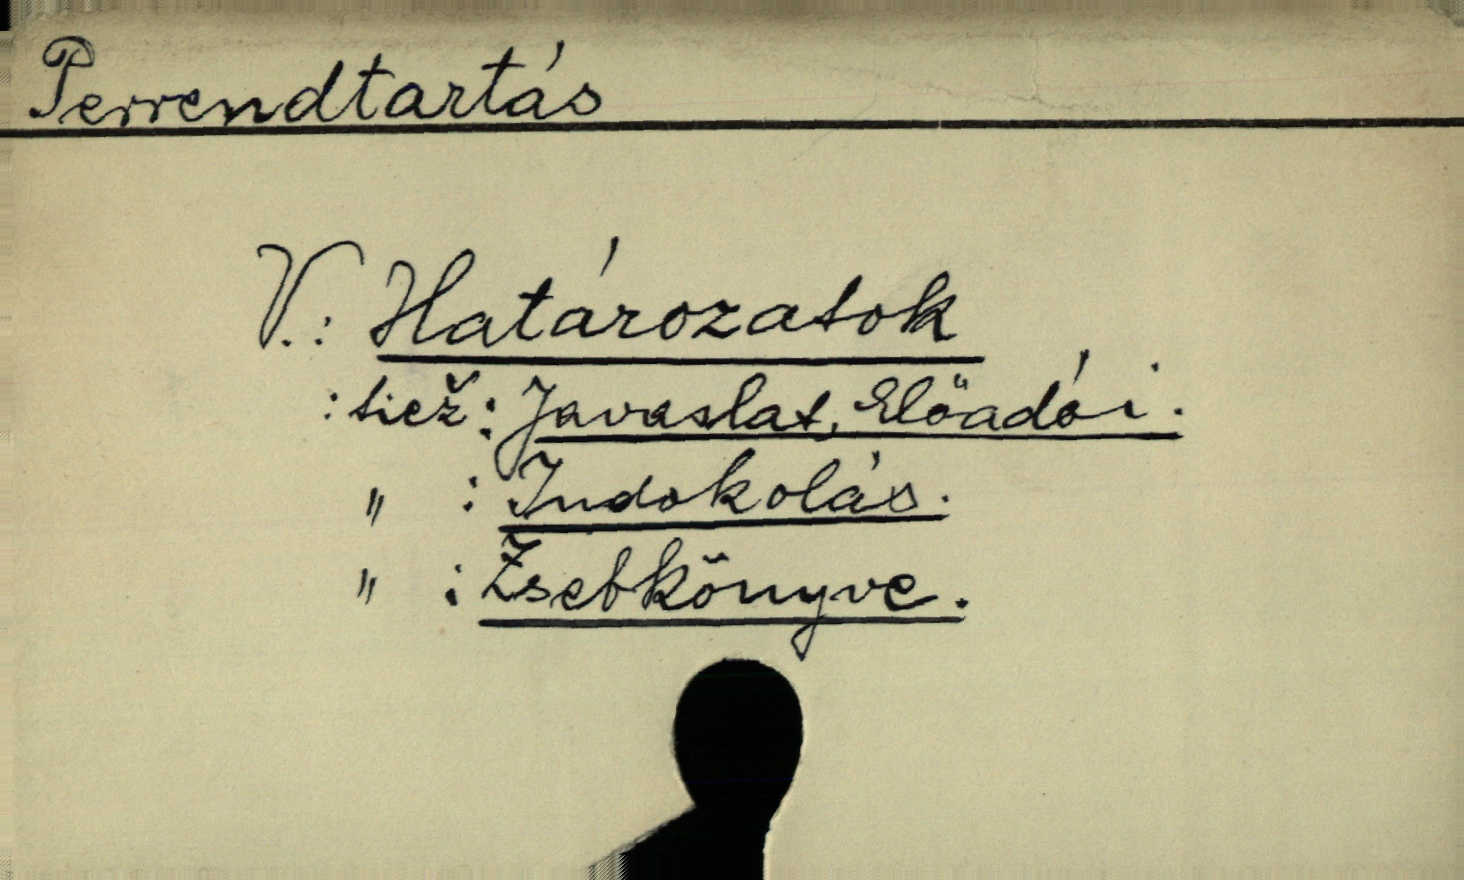 Perrendtartás
V.: Határozatok
: tiež: Javaslat, Előadói.
" : Indokolás.
" : Zsebkönyve.